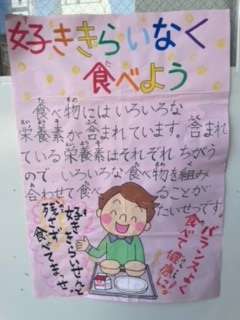 好ききらいなく
食べよう
食べ物にはいろいろな
栄養素が含まれています。含まれ
ている栄養素はそれぞれちがう
のでいろいろな食べ物を組み
合わせて食べることが
たいせつです。
バランスよく
食べて健康に!
好ききらいせんと
残さず
食べてまっせ